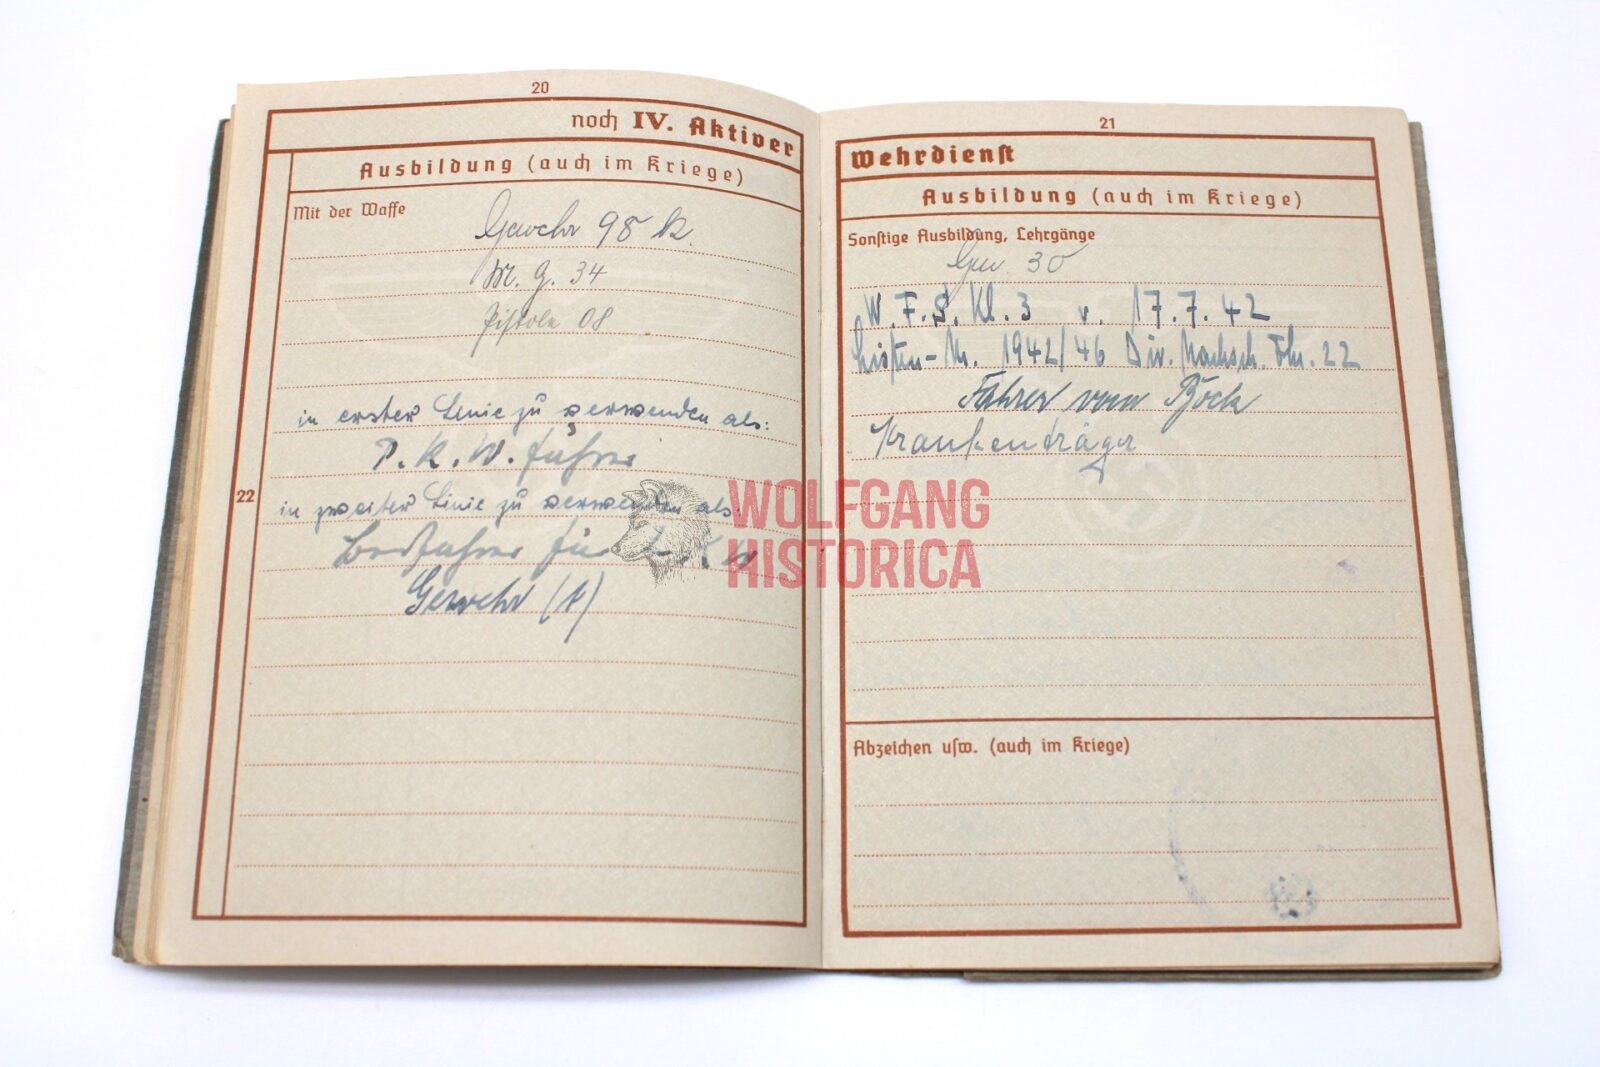 20
noch IV. Aktiver
Ausbildung (auch im Kriege)
Mit der Waffe
Gewehr 98 k.
M. G. 34
Pistole 08
in erster Linie zu verwenden als:
P. K. W. Fahrer
22
in zweiter Linie zu verwenden als:
Beifahrer für
Gewehr (A)
21
Wehrdienst
Ausbildung (auch im Kriege)
Sonstige Ausbildung, Lehrgänge
30
W. F. S. Kl. 3 v. 17. 7. 42
Listen-Nr. 1942/46 Div. Nachsch. Fhr. 22
Fahrer vom Bock
Krankenträger
Abzeichen usw. (auch im Kriege)
WOLFGANG
HISTORICA